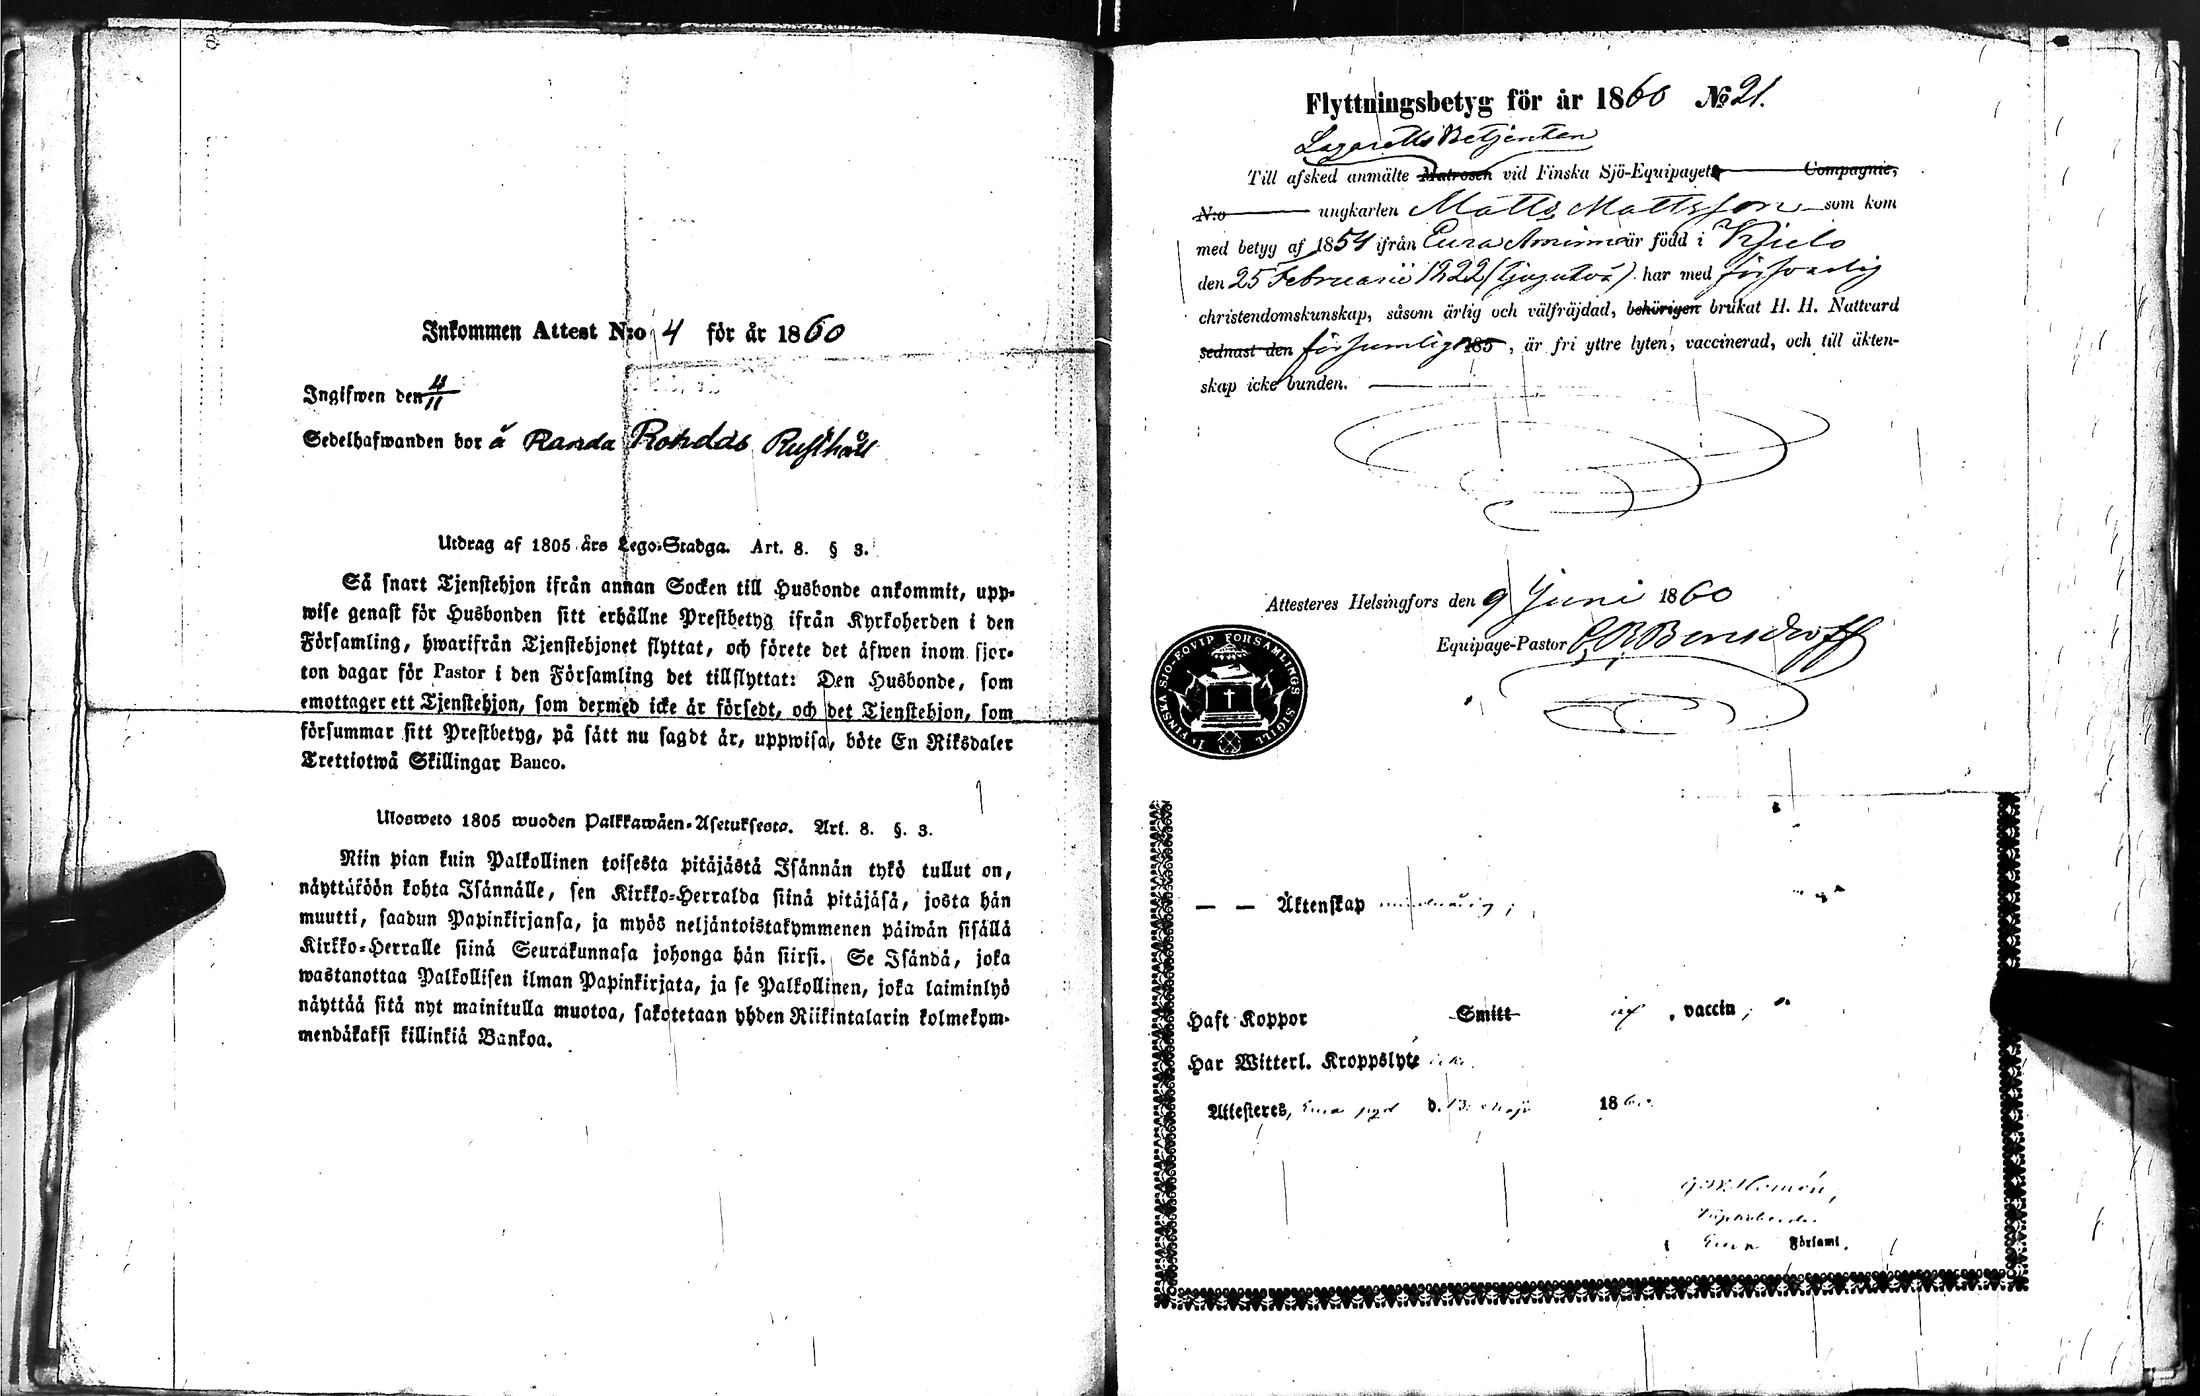 Inkommen Attest N:o 4 för år 1860
Ingifwen den 4/11
Sedelhafwanden bor å Randa Rohdais Rusthåll
Utdrag af 1805 års Lego-Stadga. Art. 8. § 3.
Så snart Tjenstehjon ifrån annan Socken till Husbonde ankommit, upp-
wise genast för Husbonden sitt erhållne Prestbetyg ifrån Kyrkoherden i den
Församling, hwarifrån Tjenstehjonet flyttat, och förete det äfwen inom fjor-
ton dagar för Pastor i den Församling det tillflyttat: Den Husbonde, som
emottager ett Tjenstehjon, som dermed icke är försedt, och det Tjenstehjon, som
försummar sitt Prestbetyg, på sätt nu sagdt är, uppwisa, böte En Riksdaler
Trettiotwå Skillingar Banco.
Ulosweto 1805 wuoden Palkkawäen-Asetuksesta. Art. 8. §. 3.
Niin pian kuin Palkollinen toisesta pitäjästä Isännän tykö tullut on,
näyttäköön kohta Isännälle, sen Kirkko-Herralda siinä pitäjäsä, josta hän
muutti, saadun Papinkirjansa, ja myös neljäntoistakymmenen päiwän sisällä
Kirkko-Herralle siinä Seurakunnasa johonga hän siirsi. Se Isändä, joka
wastanottaa Palkollisen ilman Papinkirjata, ja se Palkollinen, joka laiminlyö
näyttää sitä nyt mainitulla muotoa, sakotetaan yhden Riikintalarin kolmekym-
mendäkaksi killinkiä Bankoa.
Flyttningsbetyg för år 1860 No 21.
Lazaretts Betjenten
Till afsked anmälte Matrosen vid Finska Sjö-Equipagets Compagnie,
N:o ungkarlen Matts Mattsson som kom
med betyg af 1854 ifrån Eura Aminne är född i Kjulo
den 25 Februarii 1822 (tjugutvå) har med försvarlig
christendomskunskap, såsom ärlig och välfräjdad, behörigen brukat H. H. Nattvard
sednast den försumlig 185, är fri yttre lyten, vaccinerad, och till äkten-
skap icke bunden.
Attesteres Helsingfors den 9 Juni 1860
Equipage-Pastor
FINSKA SJÖ-EQVIP FÖRSAMLINGS SIGILL
— — Äktenskap minderårig;
Haft Koppor Smitt ej, vaccin;
Har Witterl. Kroppslyte
Attesteres, Eura pgd d. 13 Maji 1860
Kyrkoherde
i Eura Församl.